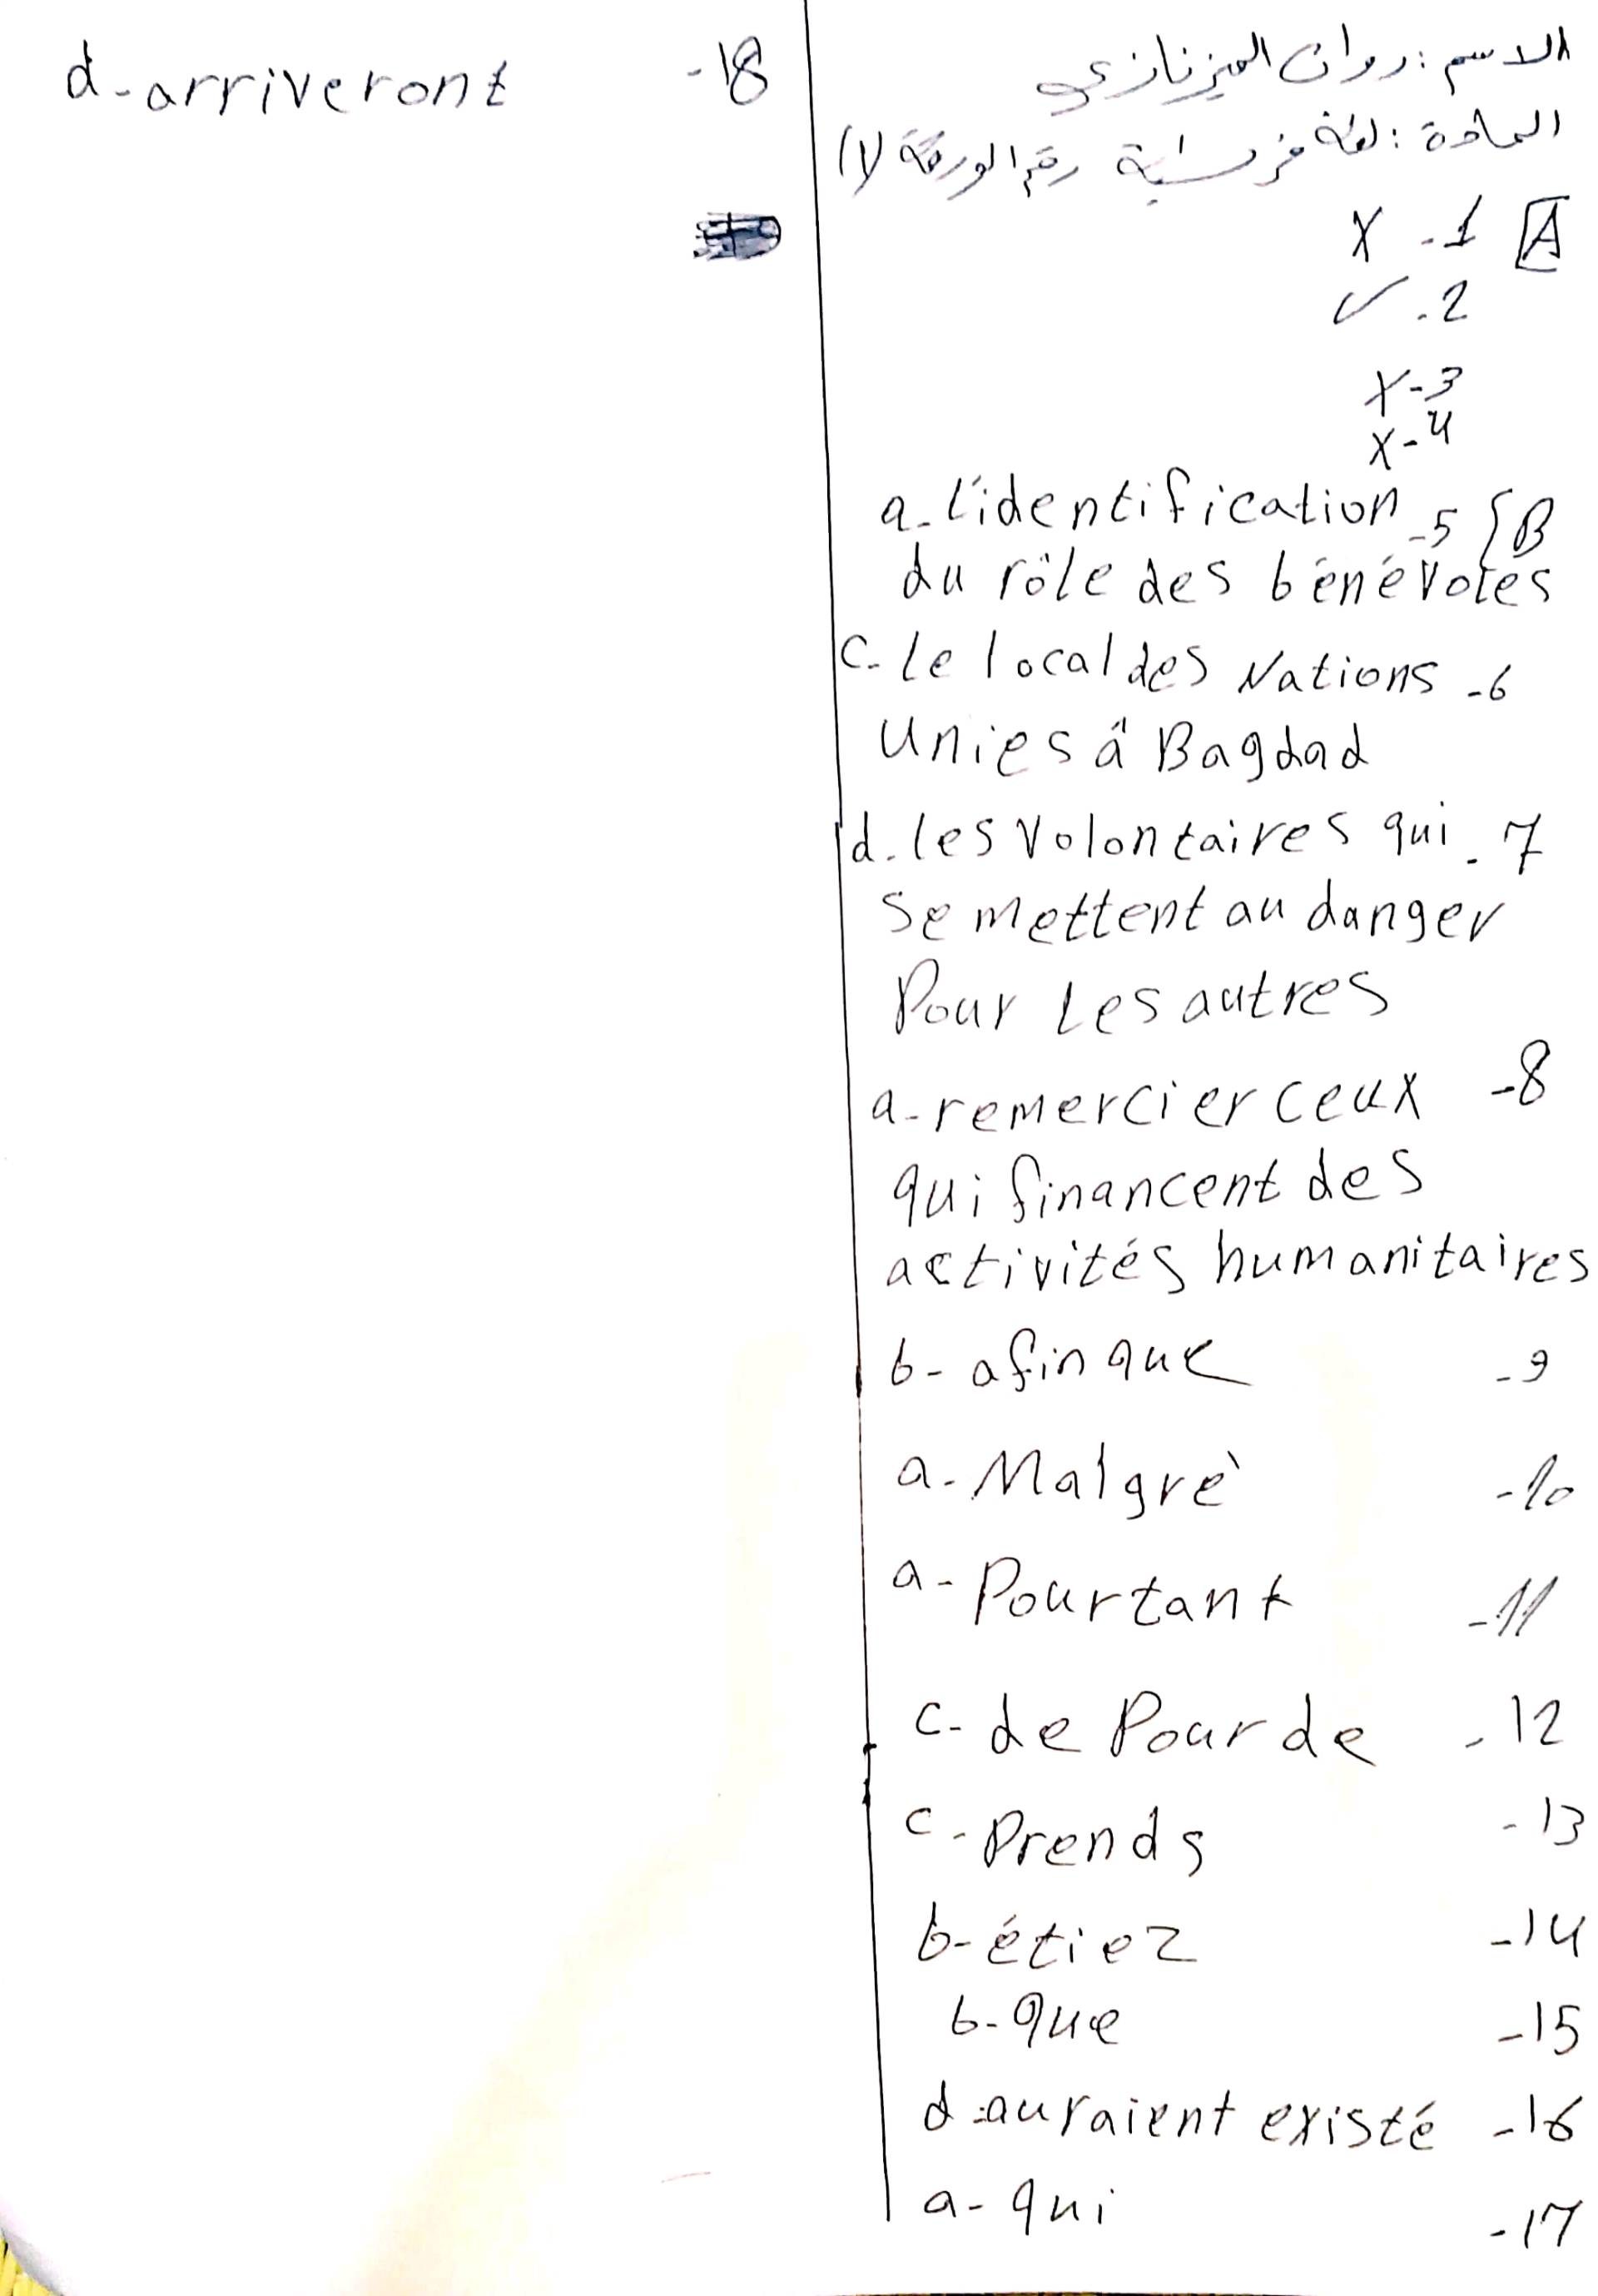 الاسم: روان الميزنازي
المادة: لغة فرنسية رقم الورقة (1)
A 1- X
2- ✓
3- X
4- X
B 5- a- l'identification
du rôle des bénévoles
6- c- le local des Nations
Unies à Bagdad
7- d- les volontaires qui
se mettent au danger
Pour les autres
8- a- remercier ceux
qui financent des
activités humanitaires
9- b- afin que
10- a- Malgrè
11- a- Pourtant
12- c- de Pour de
13- c- Prends
14- b- étiez
15- b- que
16- d- auraient existé
17- a- qui
18- d- arriveront